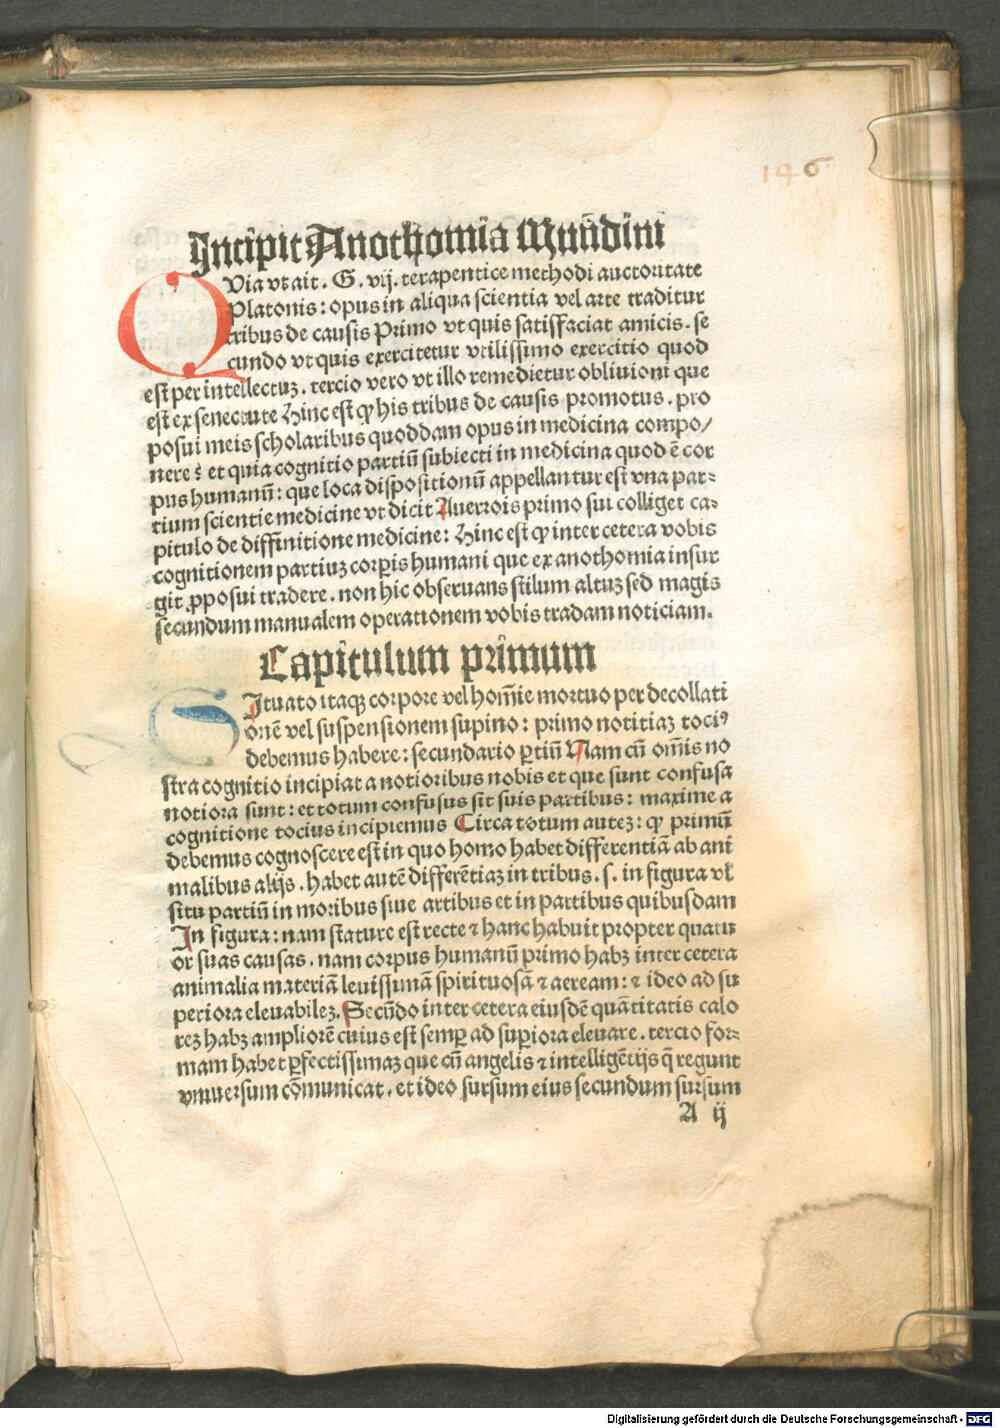 146
Incipit Anothomia Mundini
QVia vt ait. G. vij. terapentice methodi auctoritate
Platonis: opus in aliqua scientia vel arte traditur
tribus de causis Primo vt quis satisfaciat amicis. se
cundo vt quis exercitetur vtilissimo exercitio quod
est per intellectuꝫ. tercio vero vt illo remedietur obliuioni que
est ex senectute Hinc est ꝙ his tribus de causis promotus. pro
posui meis scholaribus quoddam opus in medicina compo/
nere: et quia cognitio partiū subiecti in medicina quod ē cor
pus humanū: que loca dispositionū appellantur est vna par⸗
tium scientie medicine vt dicit Auerrois primo sui colliget ca⸗
pitulo de diffinitione medicine: Hinc est ꝙ inter cetera vobis
cognitionem partiuꝫ corꝑis humani que ex anothomia insur
git ꝓposui tradere. non hic obseruans stilum altuꝫ sed magis
secundum manualem operationem vobis tradam noticiam.
Capitulum primum
SItuato itaqꝫ corpore vel hoīe mortuo per decollati
onē vel suspensionem supino: primo notitiaꝫ tociꝰ
debemus habere: secundario ꝑtiū Nam cū om̄is no
stra cognitio incipiat a notioribus nobis et que sunt confusa
notiora sunt: et totum confusus sit suis partibus: maxime a
cognitione tocius incipiemus Circa totum auteꝫ: ꝙ primū
debemus cognoscere est in quo homo habet differentiā ab ani
malibus alijs. habet autē differētiaꝫ in tribus. s. in figura vl̓
situ partiū in moribus siue artibus et in partibus quibusdam
In figura: nam stature est recte ⁊ hanc habuit propter quatu
or suas causas. nam corpus humanū primo habꝫ inter cetera
animalia materiā leuissimā spirituosā ⁊ aeream: ⁊ ideo ad su
periora eleuabileꝫ. Secūdo inter cetera eiusdē quātitatis calo
reꝫ habꝫ ampliorē cuius est semꝑ ad suꝑiora eleuare. tercio for⸗
mam habet ꝑfectissimaꝫ que cū angelis ⁊ intelligētijs q̄ regunt
vniuersum cōmunicat. et ideo sursum eius secundum sursum
A ij
Digitalisierung gefördert durch die Deutsche Forschungsgemeinschaft - DFG